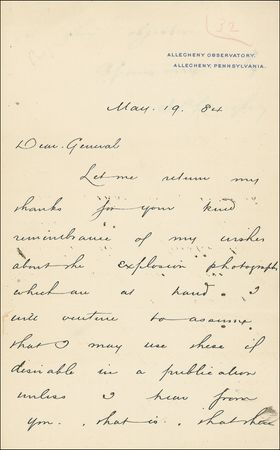 32
ALLEGHENY OBSERVATORY,
ALLEGHENY, PENNSYLVANIA.
May. 19. 84
Dear General
Let me return my
thanks for your kind
remembrance of my wishes
about the explosion photographs
which are at hand. I
will venture to assume
that I may use these if
desirable in a publication
unless I hear from
you. that is. that